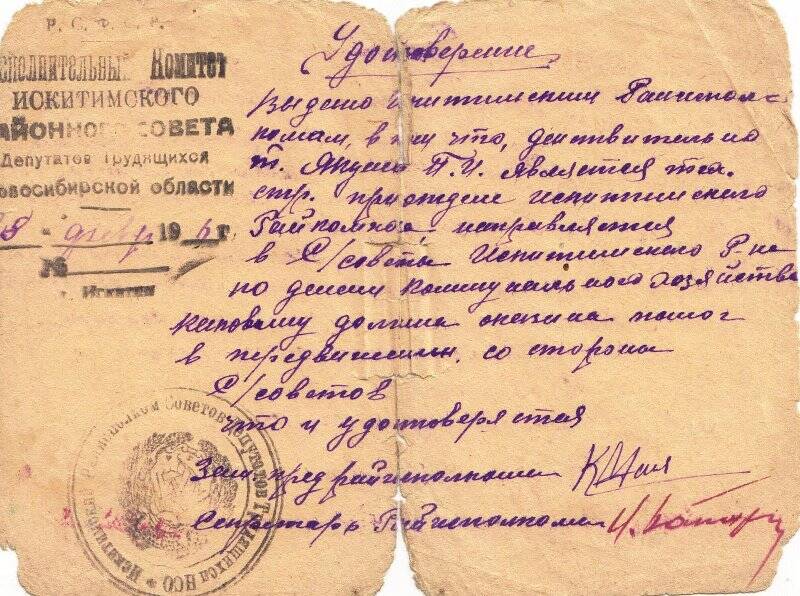 Р. С. Ф. С. Р.
сполнительный Комитет
ИСКИТИМСКОГО
АЙОННОГО СОВЕТА
Депутатов Трудящихся
овосибирской области
февр 194 г.
№
г. Искитим
Удостоверение
Выдено Искитимским Райиспол=
комам, в том что, действительно
т. П.И. является
стр. при отделе Искитимского
направляется
в С/советы Искитимского Р-на
по делам коммунального хозяйства
каковому должна оказана помог
в передвижении, со стороны
С/советов
что и удостоверяется
Зам. пред райисполкома
Секретарь Райисполкома
Искитимский Райисполком Советов Депутатов Трудящихся НСО